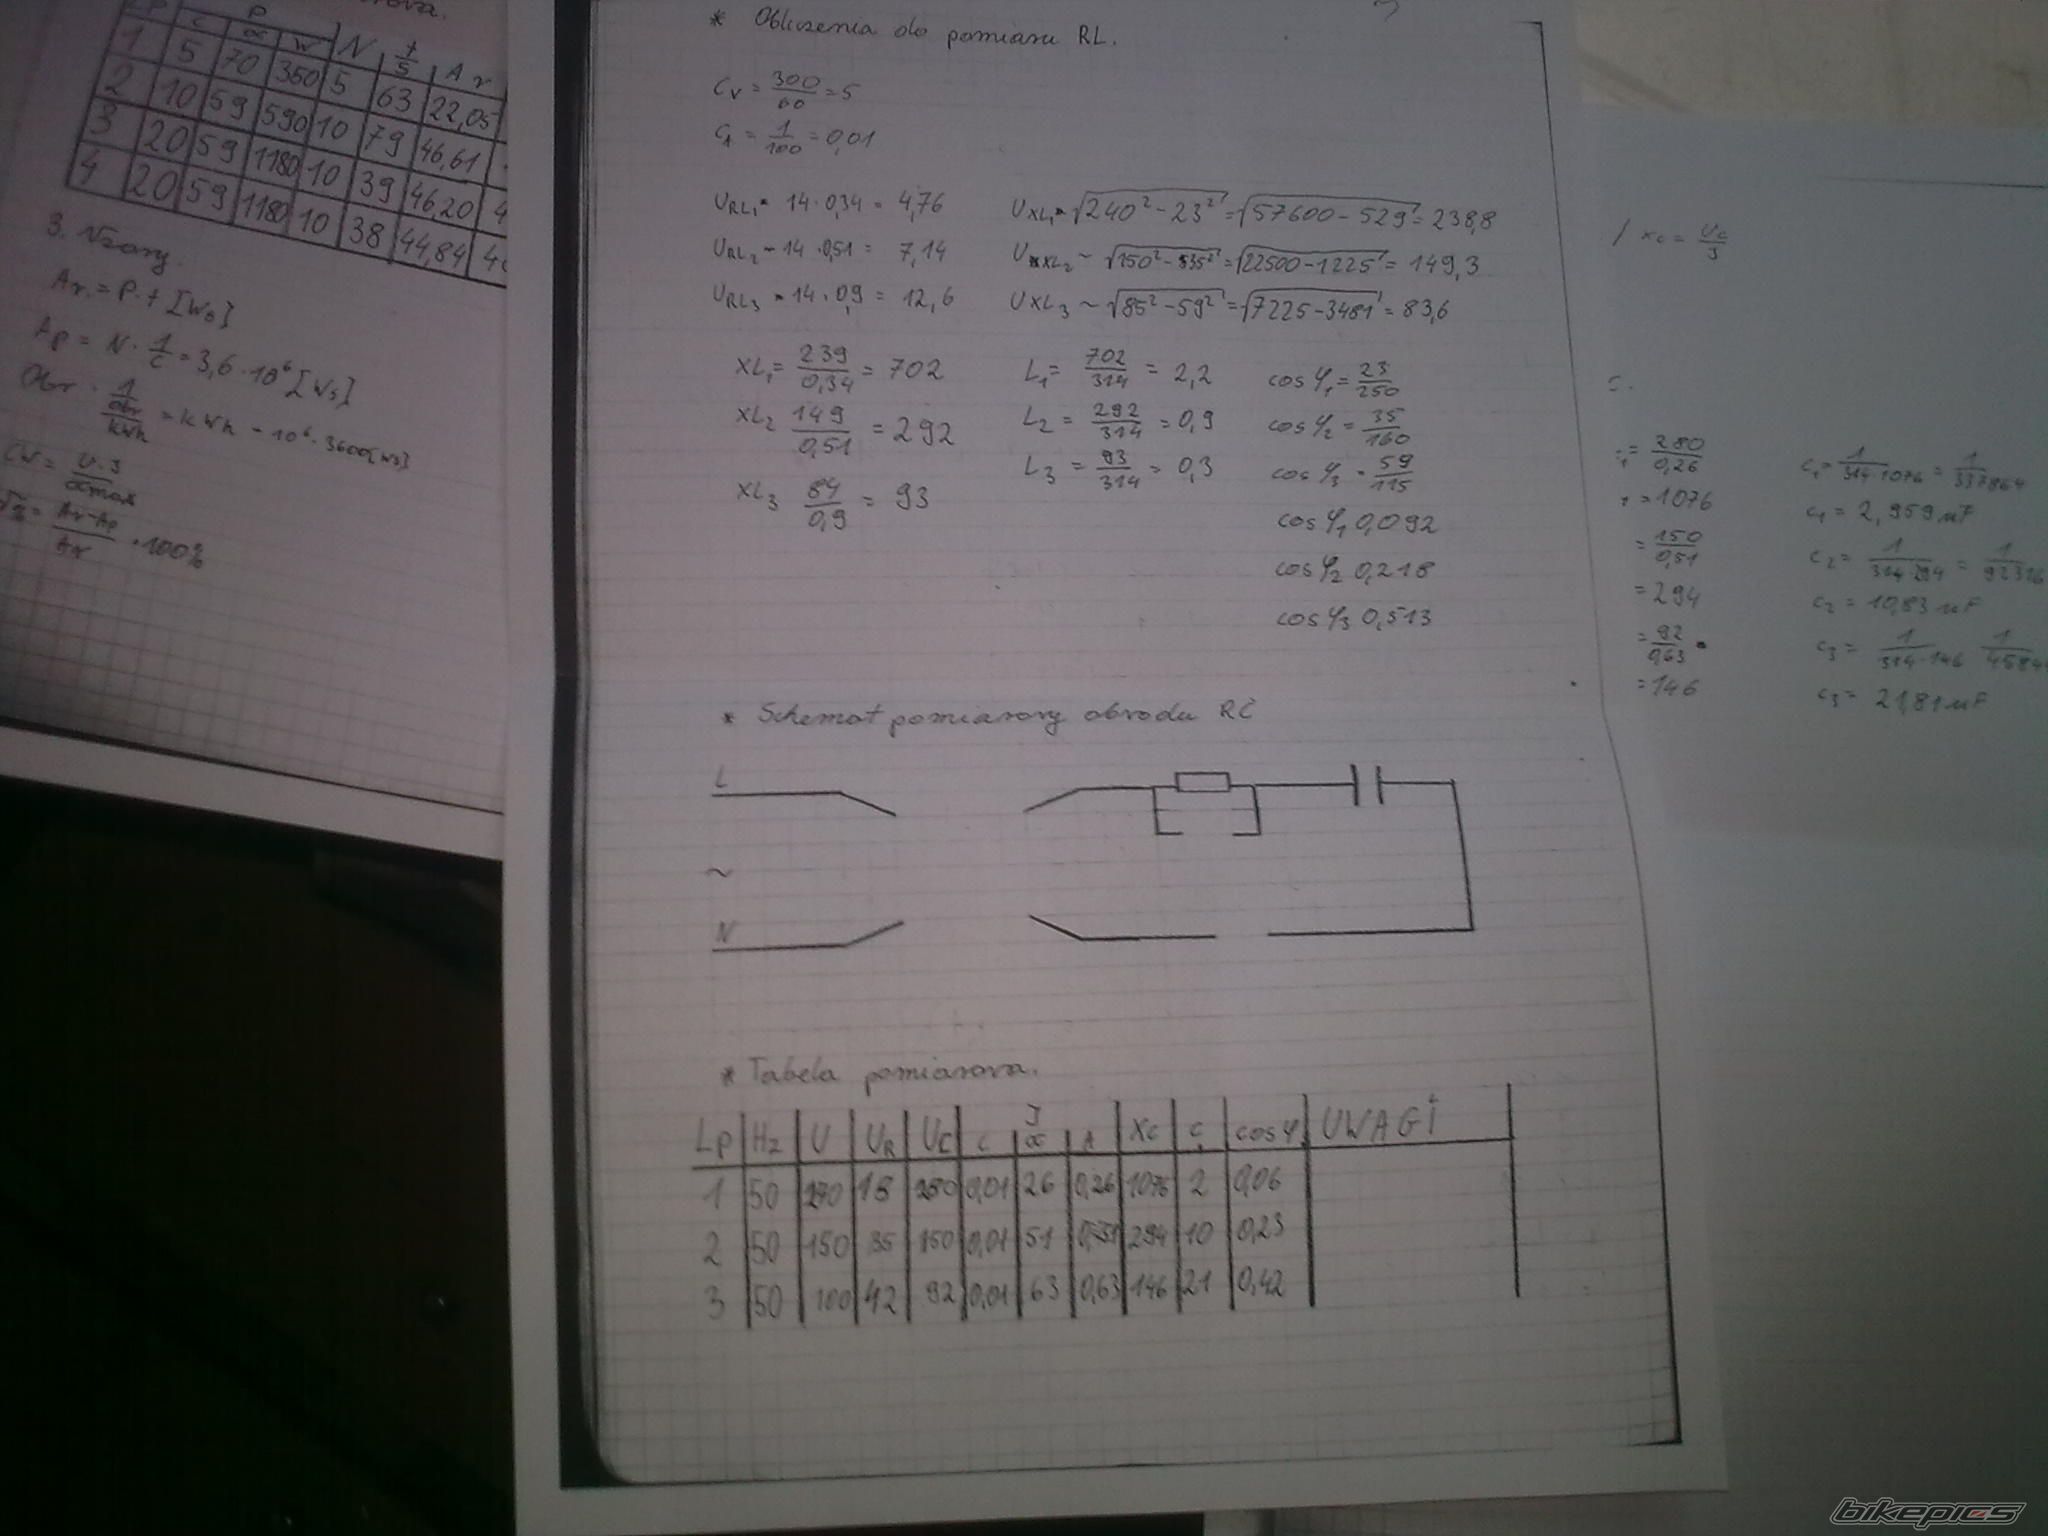 Lp c P N t A r
α W s
1 5 70 350 5 63 22,05
2 10 59 590 10 79 46,61
3 20 59 1180 10 39 46,20 4
4 20 59 1180 10 38 44,84
3. Wzory.
Ar = P·t [Ws]
Ap = N · 1/c = 3,6 · 10⁶ [Ws]
Obr · 1/(obr/kWh) = kWh - 10⁶·3600[Ws]
CW = U·J/αmax
= Ar-Ap/Ar · 100%
* Obliczenia do pomiaru RL.
Cv = 300/60 = 5
CA = 1/100 = 0,01
URL1 = 14·0,34 = 4,76
URL2 - 14·0,51 = 7,14
URL3 = 14·0,9 = 12,6
UXL1 = √240²-23² = √57600-529 = 238,8
UXL2 ~ √150²-35² = √22500-1225 = 149,3
UXL3 ~ √85²-59² = √7225-3481 = 83,6
XL1 = 239/0,34 = 702
XL2 149/0,51 = 292
XL3 84/0,9 = 93
L1 = 702/314 = 2,2
L2 = 292/314 = 0,9
L3 = 93/314 = 0,3
cos φ1 = 23/250
cos φ2 = 35/160
cos φ3 = 59/115
cos φ1 0,092
cos φ2 0,218
cos φ3 0,513
* Schemat pomiarowy obwodu RC
L
~
N
* Tabela pomiarowa.
J
Lp Hz U UR UC c α A XC C cos φ UWAGI
1 50 270 15 280 0,01 26 0,26 1076 2 0,06
2 50 150 35 150 0,01 51 0,51 294 10 0,23
3 50 100 42 92 0,01 63 0,63 146 21 0,42
/ Xc = Uc/J
= 280/0,26
= 1076
= 150/0,51
= 294
= 92/0,63
= 146
C1 = 1/314·1076 = 1/337864
C1 = 2,959 uF
C2 = 1/314·294 = 1/92316
C2 = 10,83 uF
C3 = 1/314·146 1/4584
C3 = 21,81 uF
bikepics